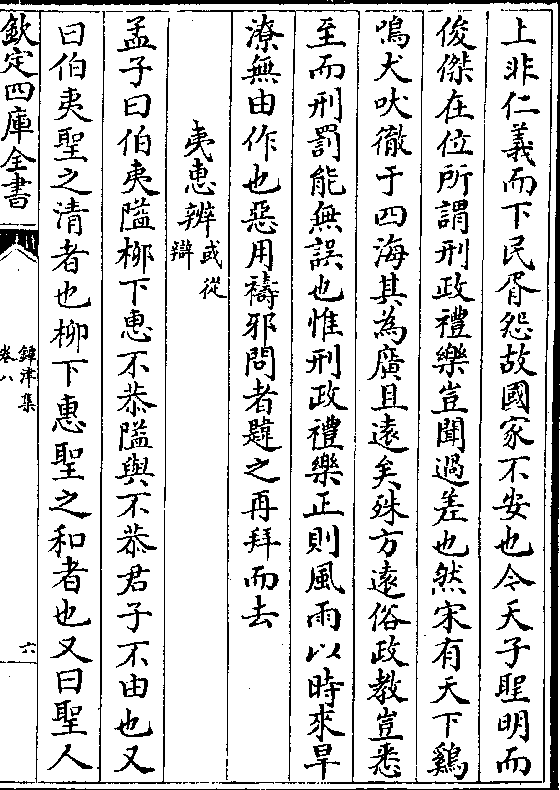 上非仁義而下民胥怨故國家不安也今天子聖明而
俊傑在位所謂刑政禮樂豈聞過差也然宋有天下鷄
鳴犬吠徹于四海其為廣且遠矣殊方遠俗政教豈悉
至而刑罰能無誤也惟刑政禮樂正則風雨以時來旱
潦無由作也惡用禱邪問者韙之再拜而去
夷惠辨或從辯
孟子曰伯夷隘柳下惠不恭隘與不恭君子不由也又
曰伯夷聖之清者也柳下惠聖之和者也又曰聖人
欽定四庫全書
鐔津集
卷八
六